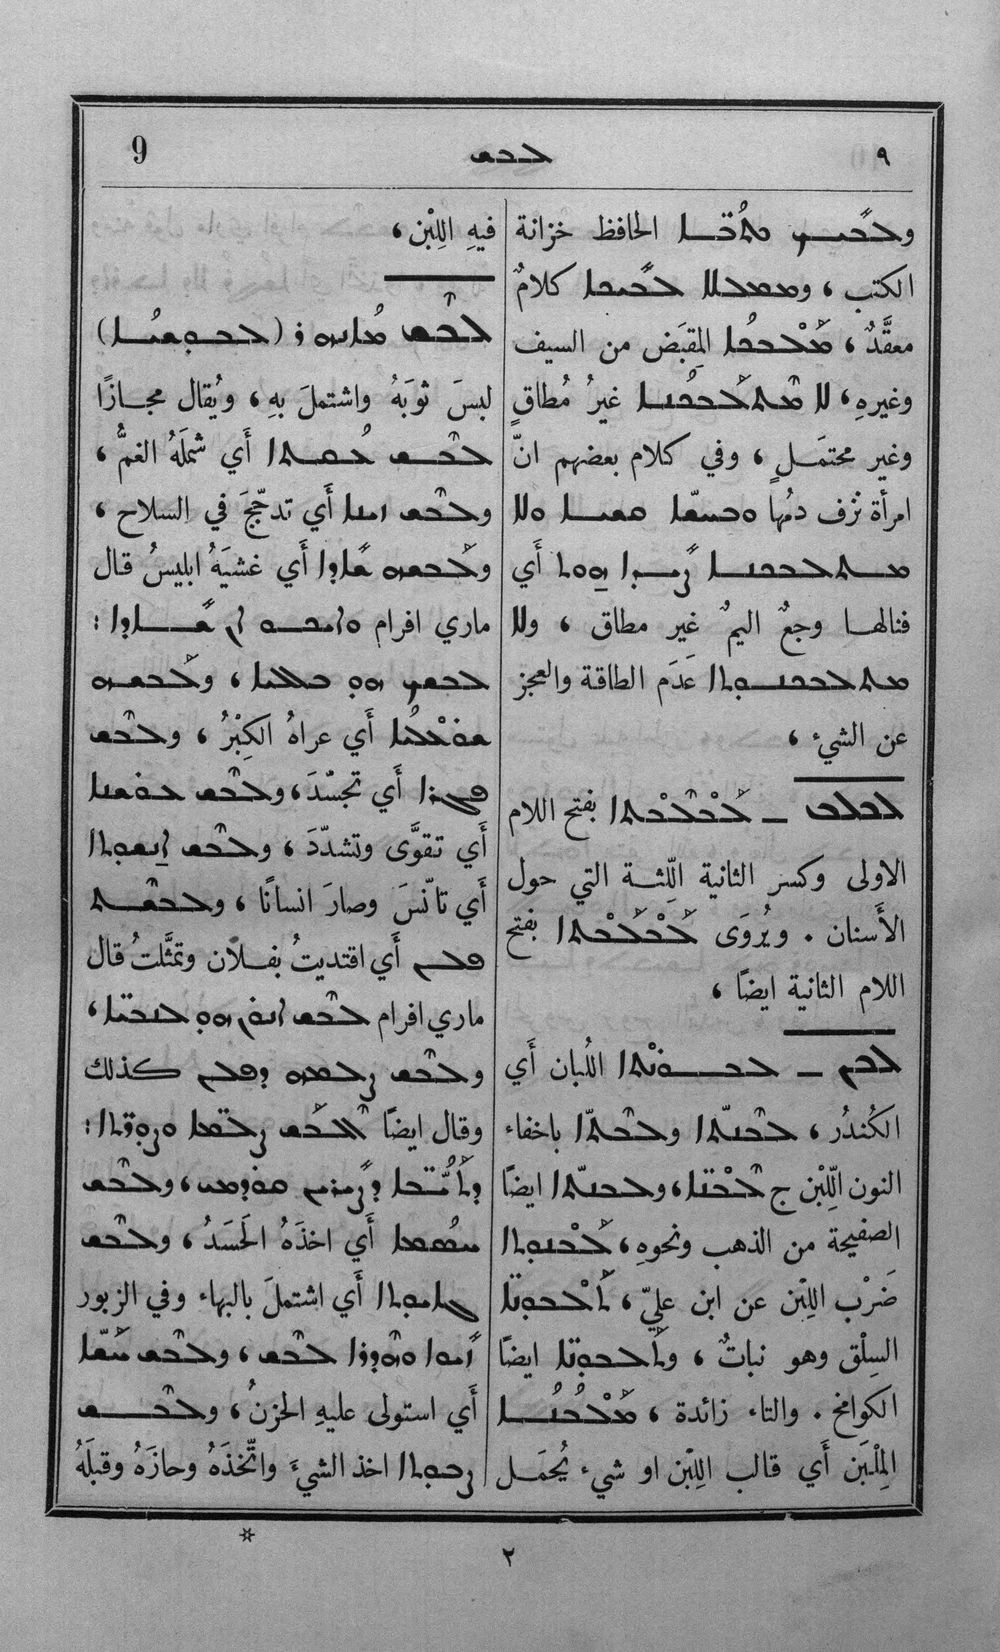 ٩ ܠܒܫ 9
ܘܠܒܝܟ ܟܬܒ̈ܐ الحافظ خزانة
الكتب ، ܘܡܡܠܠܐ ܠܒܝܟܐ كلامٌ
معقَّدٌ ، ܡܰܠܒܟܳܐ المِقبَض من السيف
وغيرهِ، ܠܐ ܡܬܠܒܟܢܐ غيرُ مُطاقٍ
وغير محتمَلٍ ، وفي كلام بعضهم انَّ
امرأة نُزف دمُها ܘܠܐ
ܡܬܠܒܟܢܐ ܗܘܬ أَي
فنالها وجعٌ اليمٌ غير مطاق ، ܘܠܐ
ܡܬܠܒܟܢܘܬܐ عَدَم الطاقة والعجز
عن الشيء ،
ܠܒܠܒ ـ ܠܰܒܠܶܒܬܐ بفتح اللام
الاولى وكسر الثانية اللِّثة التي حول
الأَسنان . ويُروَى ܠܰܒܠܰܒܬܐ بفتح
اللام الثانية ايضًا ،
ܠܒܢ ـ ܠܒܘܢܬܐ اللُبان أَي
الكُندُر ، ܠܒܢܬܐ ܘܠܒܬܐ باخفاء
النون اللِّبْن ج ܠܒ̈ܢܐ، ܘܠܒܢܬܐ ايضًا
الصفيحة من الذهب ونحوهِ، ܠܰܒܢܘܬܐ
ضَرْب اللِبْن عن ابن عليّ ، ܬܰܠܒܘܢ̈ܐ
السِلْق وهو نباتٌ ، ܘܬܠܒܘܢ̈ܐ ايضًا
الكوامخ . والتاء زائدة ، ܡܰܠܒܳܢܳܐ
المِلْبَن أَي قالب اللِبْن او شيء يُحمَل
فيهِ اللِبْن ،
ܠܒܶܫ ܡܐܢܗ ܕ (ܠܒܘܫܢܳܐ)
لبسَ ثوبَهُ واشتملَ بهِ ، ويُقال مجازًا
ܠܒܶܫ ܥܳܡܬܐ أَي شملَهُ الغمُّ ،
ܘܠܒܶܫ ܙܝܢܐ أَي تدجّجَ في السلاح ،
ܘܠܰܒܫܗ ܫܐܕܐ أَي غشيَهُ ابليسُ قال
ماري افرام ܫܐܕܐ :
ܠܒܫܟ ܗܘ ܒܥܠܝܐ ، ܘܠܰܒܫܗ
ܫܘܒܗܪܐ أَي عراهُ الكِبْرُ ، ܘܠܒܶܫ
ܦܓܪܐ أَي تجسّدَ ، ܘܠܒܶܫ ܥܘܫܢܐ
أَي تقوَّى وتشدّدَ ، ܘܠܒܶܫ ܐܢܫܘܬܐ
أَي تأنّسَ وصارَ انسانًا ، ܘܠܒܶܫܬ
ܦܠܢ أَي اقتديتُ بفلان وتمثَّلتُ قال
ماري افرام ܠܒܶܫ ܐܢܘܢ ܗܘ ܠܢܒ̈ܝܐ ،
ܘܠܒܶܫ ܨܠܡܗ ܕܦܠܢ كذلك
وقال ايضًا ܨܠܡ̈ܐ :
ܘܠܒܶܫ
ܚܣܳܡܐ أَي اخذَهُ الحَسَدُ ، ܘܠܒܶܫ
ܓܐܝܘܬܐ أَي اشتملَ بالبهاء وفي الزبور
ܙܝܘܐ ܘܗܕܪܐ ܠܒܶܫ ، ܘܠܒܶܫ ܚܰܫ̈ܐ
أَي استولى عليهِ الحزنُ ، ܘܠܒܶܫ
ܨܒܘܬܐ اخذ الشيءَ واتّخذَهُ وحازَهُ وقبلَهُ
*
٢